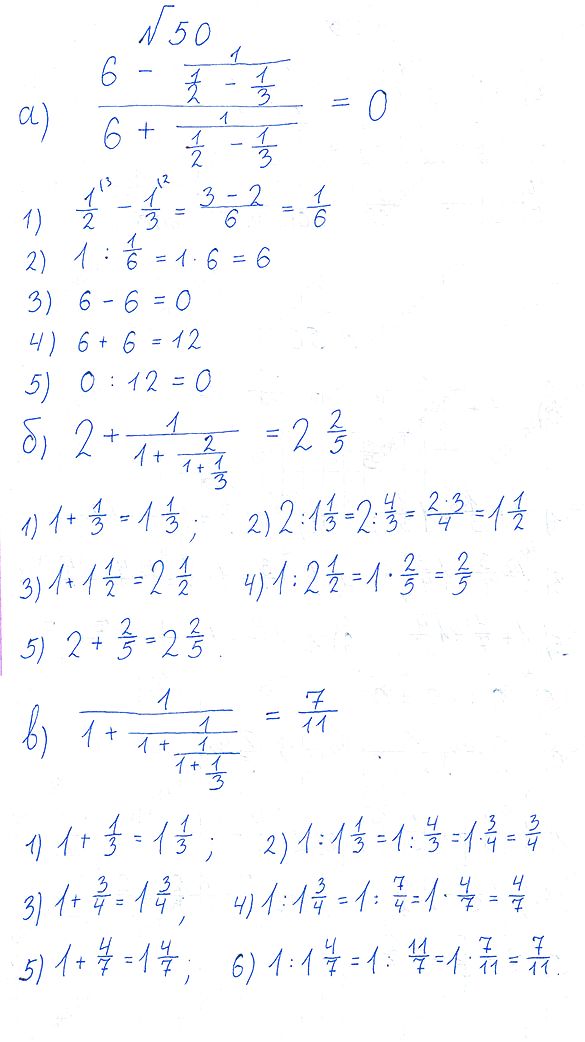 №50
а) (6 - 1/(1/2 - 1/3))/(6 + 1/(1/2 - 1/3)) = 0
1) 1/2^(\3) - 1/3^(\2) = (3 - 2)/6 = 1/6
2) 1 : 1/6 = 1 · 6 = 6
3) 6 - 6 = 0
4) 6 + 6 = 12
5) 0 : 12 = 0
б) 2 + 1/(1 + 2/(1 + 1/3)) = 2 2/5
1) 1 + 1/3 = 1 1/3 ; 2) 2 : 1 1/3 = 2 : 4/3 = (2 · 3)/4 = 1 1/2
3) 1 + 1 1/2 = 2 1/2 4) 1 : 2 1/2 = 1 · 2/5 = 2/5
5) 2 + 2/5 = 2 2/5 .
в) 1/(1 + 1/(1 + 1/(1 + 1/3))) = 7/11
1) 1 + 1/3 = 1 1/3 ; 2) 1 : 1 1/3 = 1 : 4/3 = 1 · 3/4 = 3/4
3) 1 + 3/4 = 1 3/4 ; 4) 1 : 1 3/4 = 1 : 7/4 = 1 · 4/7 = 4/7
5) 1 + 4/7 = 1 4/7 ; 6) 1 : 1 4/7 = 1 : 11/7 = 1 · 7/11 = 7/11 .